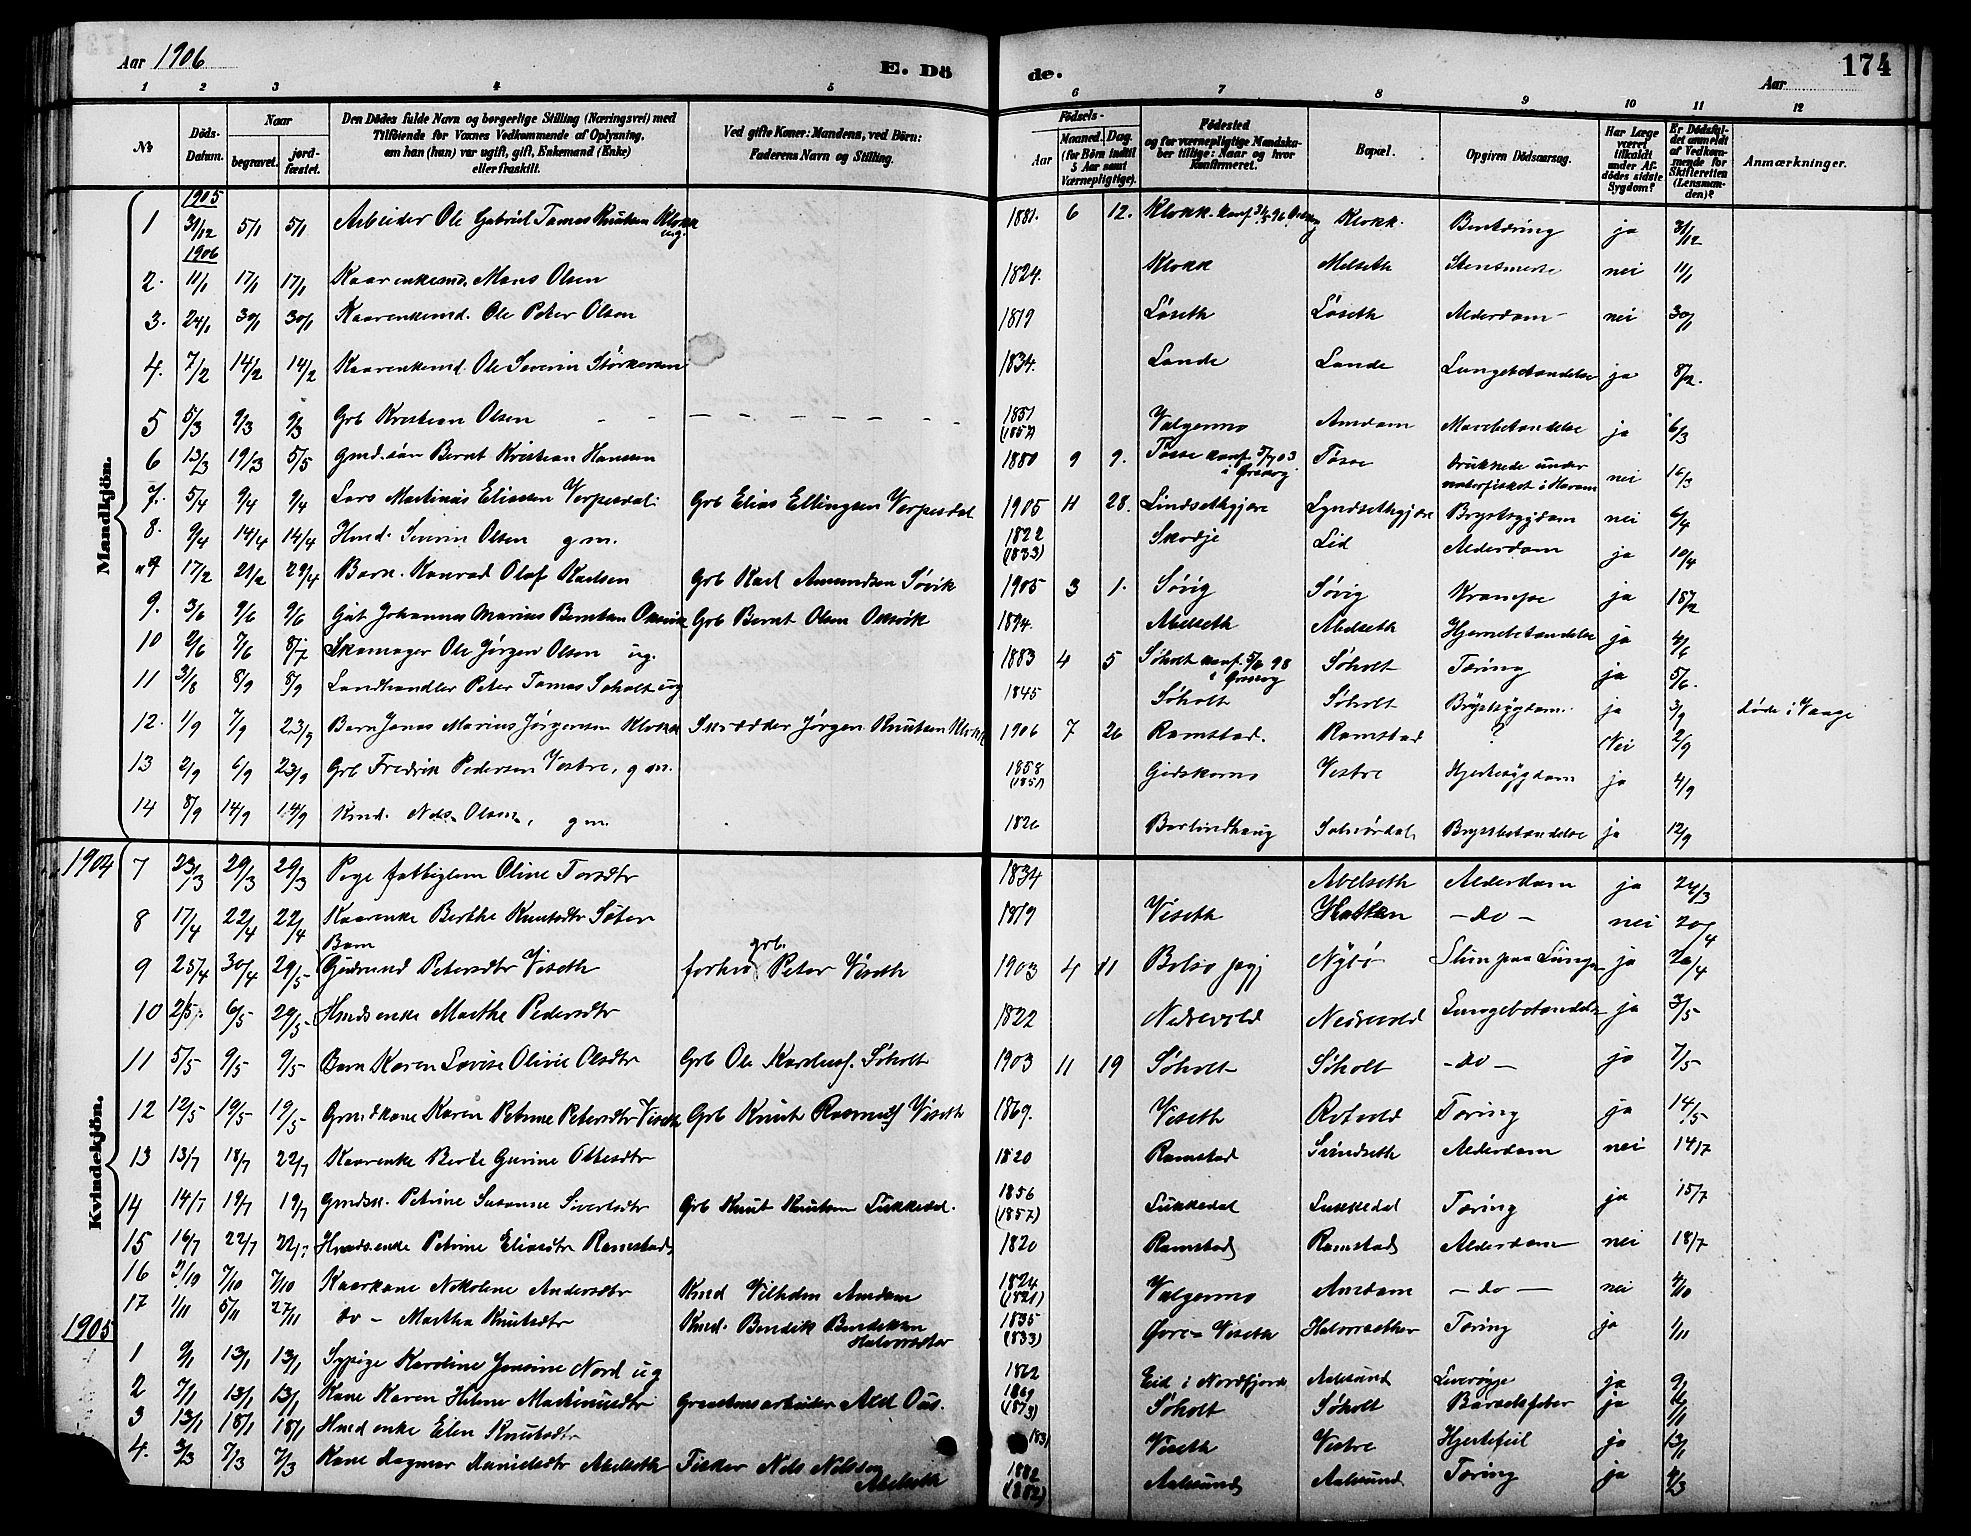 Aar 1906
E. Dö de.
Aar
174
1 2 3 4 5 6 7 8 9 10 11 12
No
Döds-Datum.
Naar
begravet.
jord-fæstet.
Den Dödes fulde Navn og borgerlige Stilling (Næringsvei) med
Tilföiende for Voxnes Vedkommende af Oplysning,
om han (hun) var ugift, gift, Enkemand (Enke)
eller fraskilt.
Ved gifte Koner: Mandens, ved Börn:
Faderens Navn og Stilling.
Födsels-
Aar
Maaned. Dag.
(for Börn indtil
5 Aar samt
Værnepligtige).
Födested
og for værnepligtige Mandska-
ber tillige: Naar og hvor
Konfirmeret.
Bopæl.
Opgiven Dödsaarsag.
Har Læge
været
tilkaldt
under Af-
dödes sidste
Sygdom?
Er Dödsfal-
det anmeldt
af Vedkom-
mende for
Skifteretten
(Lensman-
den)?
Anmærkninger.
Mandkjön.
1905
1 31/12 5/1 5/1 Arbeider Ole Gabriel Tomas Knutsen Klokk ug. 1881. 6 12. Klokk. konf. Klokk. ja 31/12
1906
2. 11/1 17/1 17/1 Kaarenkemd. Mons Olsen 1824. Klokk Melseth nei 11/1
3. 24/1 30/1 30/1 Kaarenkemd. Ole Peter Olsen 1819 Løseth Løseth Alderdom nei 30/1
4. 7/2 14/2 14/2 Kaarenkemd. Ole Severin Størkersen 1834. Lande Lande Lungebetændelse ja 8/2.
5 5/3 9/3 9/3 Grb Kristian Olsen 1851 (1857) Valgermo Amdam Mavebetændelse ja 6/3
6 13/3 19/3 5/5 Gmd.søn Bernt Kristian Hansen 1880 9 9. Tøsse konf. i Ørskog Tøsse druknede under vinterfisket i Haram nei 16/3
7. 5/4 9/4 9/4 Lars Martinus Eliassen Verpesdal Grb Elias Ellingsen Verpesdal 1905 11 28. Lindsethgjære Lyndsethgjære Brystsygdom nei 6/4
8. 9/4 14/4 14/4 Kmd. Severin Olsen gm. 1822 (1833) Skodje Lid Alderdom ja 10/4
17/2 21/2 29/4 Barn. Konrad Olaf Karlsen Grb Karl Amundsen Søvik 1905 3 1. Søvig Søvig Krampe ja 18/2
9. 3/6 9/6 9/6 Gut Johannes Marius Berntsen Grb Bernt Olsen 1894. Abelseth Abelseth Hjernebetændelse ja 4/6
10 2/6 7/6 8/7 Skomager Ole Jørgen Olsen ug. 1883 4 5 Søholt konf. 5/6 98 i Ørskog Søholt Tæring ja 5/6.
11 31/8 8/9 8/9 Landhandler Peter Tomas Søholt ug 1845 Søholt Søholt Brystsygdom ja 3/9 døde i Vaage
12. 1/9 7/9 23/9 Barn Jonas Marius Jørgensen Klokk Skrædder Jørgen Knutsen Klokk 1906 7 26 Ramstad. Ramstad ? Nei 2/9
13 2/9 6/9 23/9 Grb Fredrik Pedersen Vestre, gm. 1858 (1851) Giskemo Vestre Hjertesygdom ja 4/9
14 8/9 14/9 14/9 Kmd. Nils Olsen, gm. 1826 Barlindhaug Solnørdal Brystbetændelse ja 12/9
Kvindekjön.
1904
7 23/3 29/3 29/3 Pige fattiglem Oline Torsdtr 1834 Abelseth Alderdom ja 24/3
8 17/4 22/4 22/4 Kaarenke Berthe Knutsdtr Sæter 1819 Viseth Hatlen - do - nei 20/4
9 25/4 30/4 29/5 Barn Gudrund Petersdtr Viseth forhv. grb. Peter Viseth 1903 4 11 Bolsø pgj Nybø Slim paa Lunge ja 26/4
10 2/5 6/5 29/5 Kmds enke Marthe Pedersdtr 1822 Nedrevold Nedrevold Lungebetændelse ja 3/5
11 5/5 9/5 9/5 Barn Karen Lovise Olivie Olsdtr Grb Ole Søholt 1903 11 19 Søholt Søholt - do - ja 7/5
12 12/5 19/5 19/5 Grmdkone Karen Petrine Petersdtr Viseth Grb Knut Rasmus. Viseth 1869. Viseth Tæring ja 14/5
13 13/7 18/7 22/7 Kaarenke Berte Gurine Ottesdtr 1820 Ramstad Svindseth Alderdom nei 14/7
14 14/7 19/7 19/7 Gmdsk. Petrine Susanne Sivertsdtr Grb Knut Knutsen Lukkedal. 1856 (1857) Lukkedal Lukkedal Tæring ja 15/7
15 16/7 22/7 22/7 Kmdsenke Petrine Eliasdtr Ramstad 1820 Ramstad Ramstad Alderdom nei 18/7
16 2/10 7/10 7/10 Kaarkone Nikoline Andersdtr Kmd Vilhelm Amdam 1824 (1821) Valgermo Amdam - do - nei 4/10
17 1/11 5/11 27/11 do - Martha Knutsdtr Kmd. Bendik Bendiksen 1835 (1833) Øvre Viseth Tæring ja 1/11
1905
1 9/1 13/1 13/1 Sypige Karoline Jensine Nord ug 1862 Eid i Nordfjord Aalesund ja 9/1
2 7/1 13/1 13/1 Kone Karen Helene Martinusdtr 1869 (1873) Søholt Søholt Barselfeber ja
3 13/1 18/1 18/1 Kmd enke Elen Knutsdtr 1831 Viseth Vestre Hjertefeil ja 13/1
4. 3/3 7/3 7/3 Kone Dagmar Danielsdtr Abelseth Fisker Nils Nilssen Abelseth 1882 (1882) Aalesund Aalesund Tæring ja 4/3